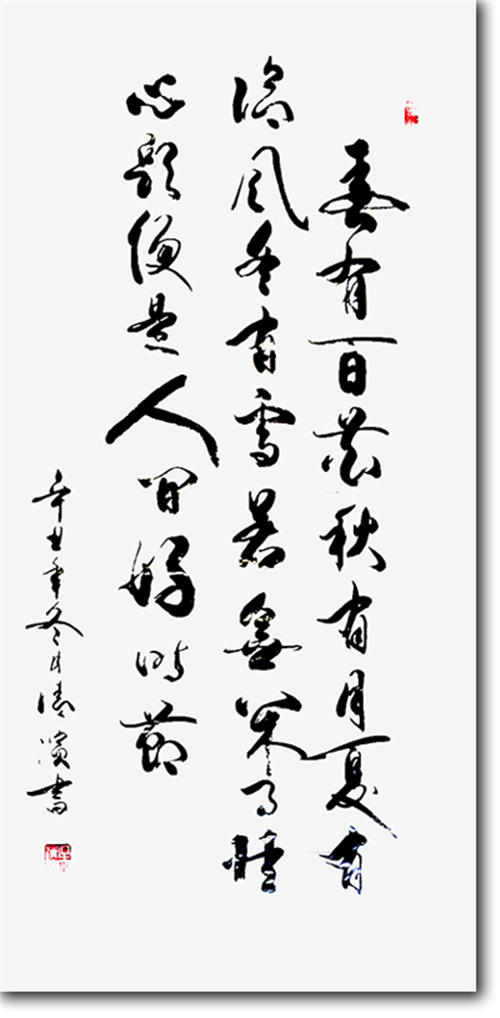 春有百花秋有月夏有
涼風冬有雪若無閑事挂
心頭便是人間好時節
辛丑年冬月清濱書